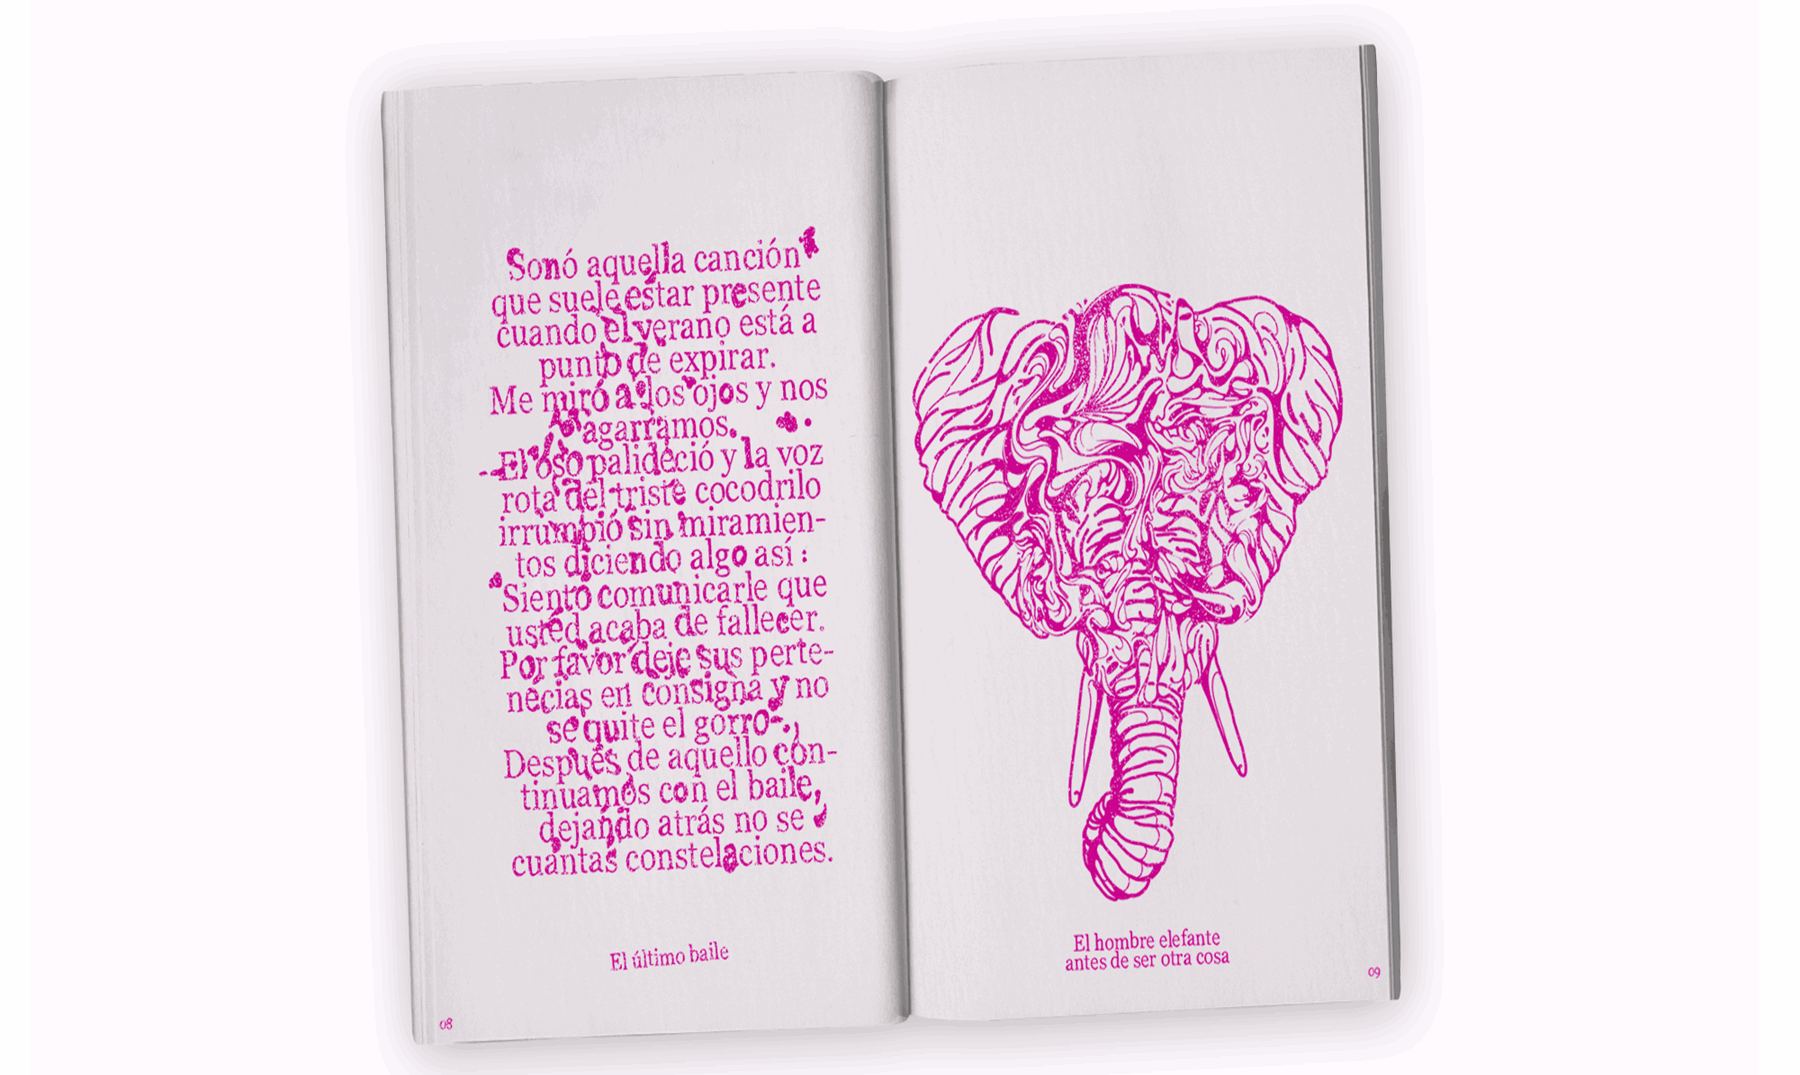 Sonó aquella canción
que suele estar presente
cuando el verano está a
punto de expirar.
Me miró a los ojos y nos
agarramos.
El oso palideció y la voz
rota del triste cocodrilo
irrumpió sin miramien-
tos diciendo algo así :
Siento comunicarle que
usted acaba de fallecer.
Por favor deje sus perte-
necias en consigna y no
se quite el gorro.
Después de aquello con-
tinuamos con el baile,
dejando atrás no se
cuantas constelaciones.
El último baile
08
El hombre elefante
antes de ser otra cosa
09